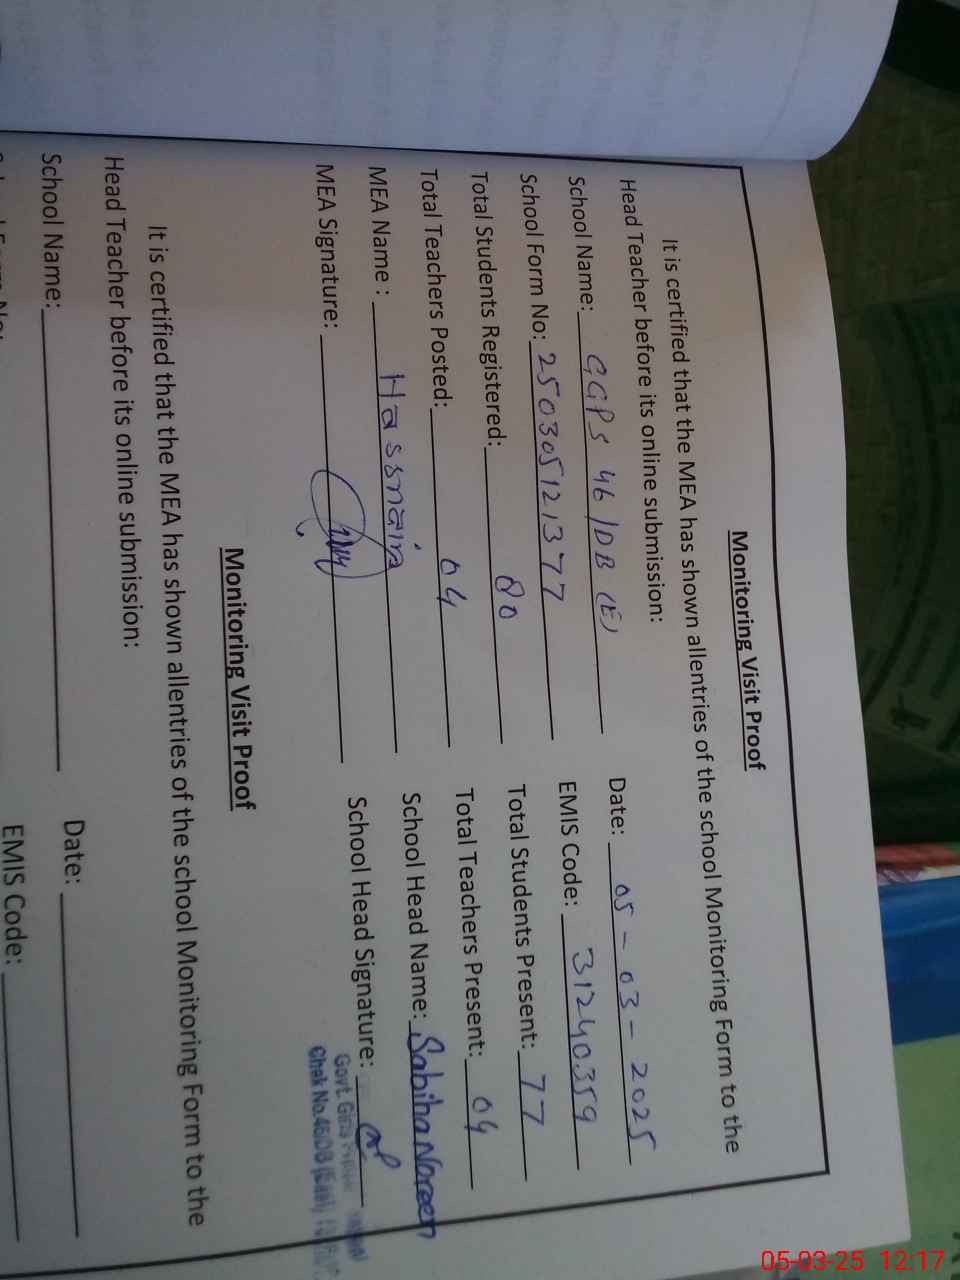 Monitoring Visit Proof
It is certified that the MEA has shown allentries of the school Monitoring Form to the
Head Teacher before its online submission:
School Name: GGPS 46/DB (E) Date: 05-03-2025
School Form No: 250305121377 EMIS Code: 31240359
Total Students Registered: 80 Total Students Present: 77
Total Teachers Posted: 04 Total Teachers Present: 04
MEA Name : Hassnain School Head Name: Sabiha Noreen
MEA Signature: School Head Signature:
Govt. Girls
Chak No.46/DB (East)
Monitoring Visit Proof
It is certified that the MEA has shown allentries of the school Monitoring Form to the
Head Teacher before its online submission:
School Name: Date:
EMIS Code:
05-03-25 12:17